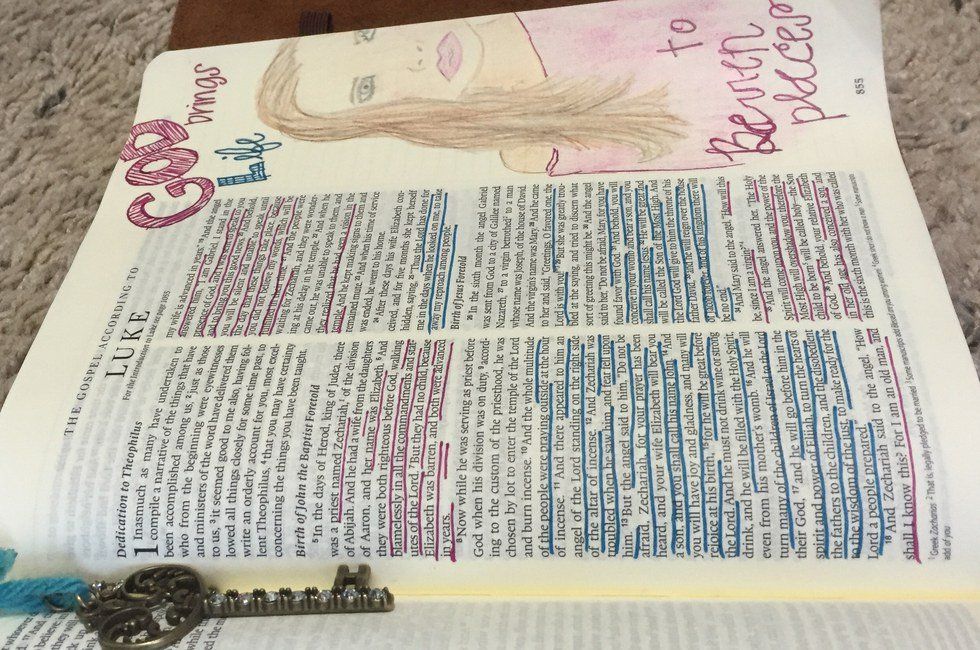 GOD brings
life
to
Barren
places
855
THE GOSPEL ACCORDING TO
LUKE
For the Introduction to Luke see page
Dedication to Theophilus
1 Inasmuch as many have undertaken to
compile a narrative of the things that have
been accomplished among us, 2 just as those
who from the beginning were eyewitnesses
and ministers of the word have delivered them
to us, 3 it seemed good to me also, having fol-
lowed all things closely for some time past, to
write an orderly account for you, most excel-
lent Theophilus, 4 that you may have certainty
concerning the things you have been taught.
Birth of John the Baptist Foretold
5 In the days of Herod, king of Judea, there
was a priest named Zechariah, 1 of the division
of Abijah. And he had a wife from the daughters
of Aaron, and her name was Elizabeth. 6 And
they were both righteous before God, walking
blamelessly in all the commandments and stat-
utes of the Lord. 7 But they had no child, because
Elizabeth was barren, and both were advanced
in years.
8 Now while he was serving as priest before
God when his division was on duty, 9 accord-
ing to the custom of the priesthood, he was
chosen by lot to enter the temple of the Lord
and burn incense. 10 And the whole multitude
of the people were praying outside at the hour
of incense. 11 And there appeared to him an
angel of the Lord standing on the right side
of the altar of incense. 12 And Zechariah was
troubled when he saw him, and fear fell upon
him. 13 But the angel said to him, "Do not be
afraid, Zechariah, for your prayer has been
heard, and your wife Elizabeth will bear you
a son, and you shall call his name John. 14 And
you will have joy and gladness, and many will
rejoice at his birth, 15 for he will be great before
the Lord. And he must not drink wine or strong
drink, and he will be filled with the Holy Spirit,
even from his mother's womb. 16 And he will
turn many of the children of Israel to the Lord
their God, 17 and he will go before him in the
spirit and power of Elijah, to turn the hearts of
the fathers to the children, and the disobedient
to the wisdom of the just, to make ready for the
Lord a people prepared."
18 And Zechariah said to the angel, "How
shall I know this? For I am an old man, and
my wife is advanced in years." 19 And the angel
answered him, "I am Gabriel. I stand in the
presence of God, and I was sent to speak to you
and to bring you this good news. 20 And behold,
you will be silent and unable to speak until
the day that these things take place, because
you did not believe my words, which will be
fulfilled in their time." 21 And the people were
waiting for Zechariah, and they were wonder-
ing at his delay in the temple. 22 And when he
came out, he was unable to speak to them, and
they realized that he had seen a vision in the
temple. And he kept making signs to them and
remained mute. 23 And when his time of service
was ended, he went to his home.
24 After these days his wife Elizabeth con-
ceived, and for five months she kept herself
hidden, saying, 25 "Thus the Lord has done for
me in the days when he looked on me, to take
away my reproach among people."
Birth of Jesus Foretold
26 In the sixth month the angel Gabriel
was sent from God to a city of Galilee named
Nazareth, 27 to a virgin betrothed 2 to a man
whose name was Joseph, of the house of David.
And the virgin's name was Mary. 28 And he came
to her and said, "Greetings, O favored one, the
Lord is with you!" 29 But she was greatly trou-
bled at the saying, and tried to discern what
sort of greeting this might be. 30 And the angel
said to her, "Do not be afraid, Mary, for you have
found favor with God. 31 And behold, you will
conceive in your womb and bear a son, and you
shall call his name Jesus. 32 He will be great and
will be called the Son of the Most High. And
the Lord God will give to him the throne of his
father David, 33 and he will reign over the house
of Jacob forever, and of his kingdom there will
be no end."
34 And Mary said to the angel, "How will this
be, since I am a virgin?"
35 And the angel answered her, "The Holy
Spirit will come upon you, and the power of the
Most High will overshadow you; therefore the
child to be born will be called holy—the Son
of God. 36 And behold, your relative Elizabeth
in her old age has also conceived a son, and
this is the sixth month with her who was called
1 Greek Zacharias 2 That is, legally pledged to be married